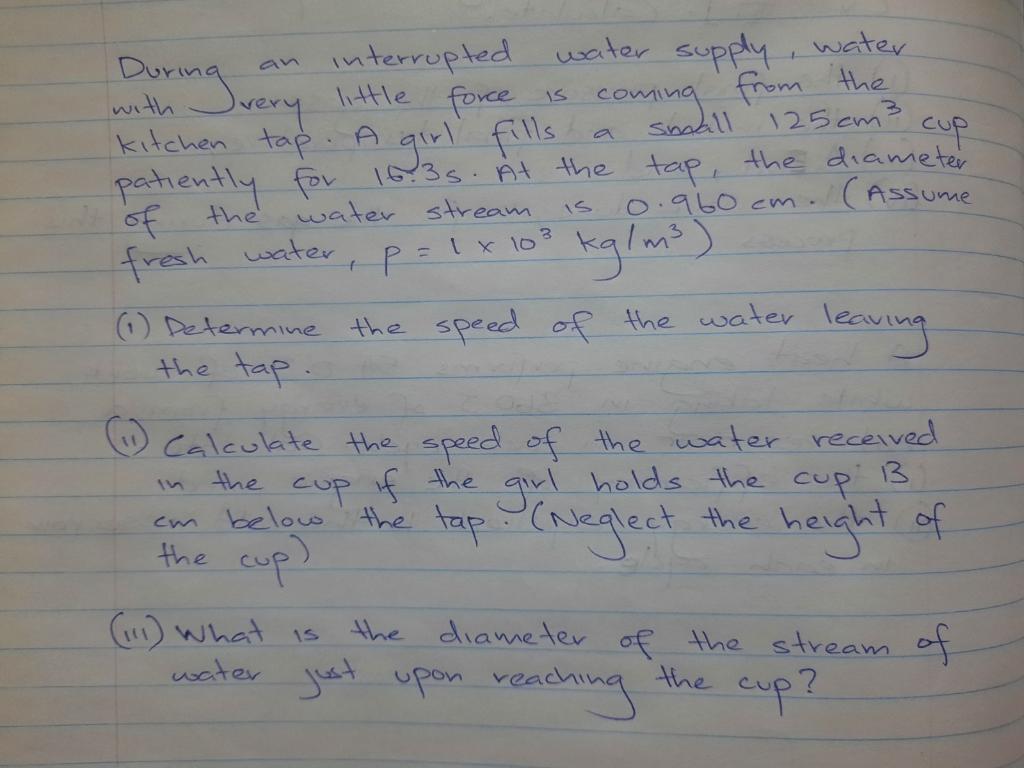 During an interrupted water supply, water
with very little force is coming from the
kitchen tap. A girl fills a small 125cm³ cup
patiently for 16.3s. At the tap, the diameter
of the water stream is 0.960 cm. (Assume
fresh water, ρ = 1 x 10³ kg/m³)
(i) Determine the speed of the water leaving
the tap.
(ii) Calculate the speed of the water received
in the cup if the girl holds the cup 13
cm below the tap. (Neglect the height of
the cup)
(iii) What is the diameter of the stream of
water just upon reaching the cup?